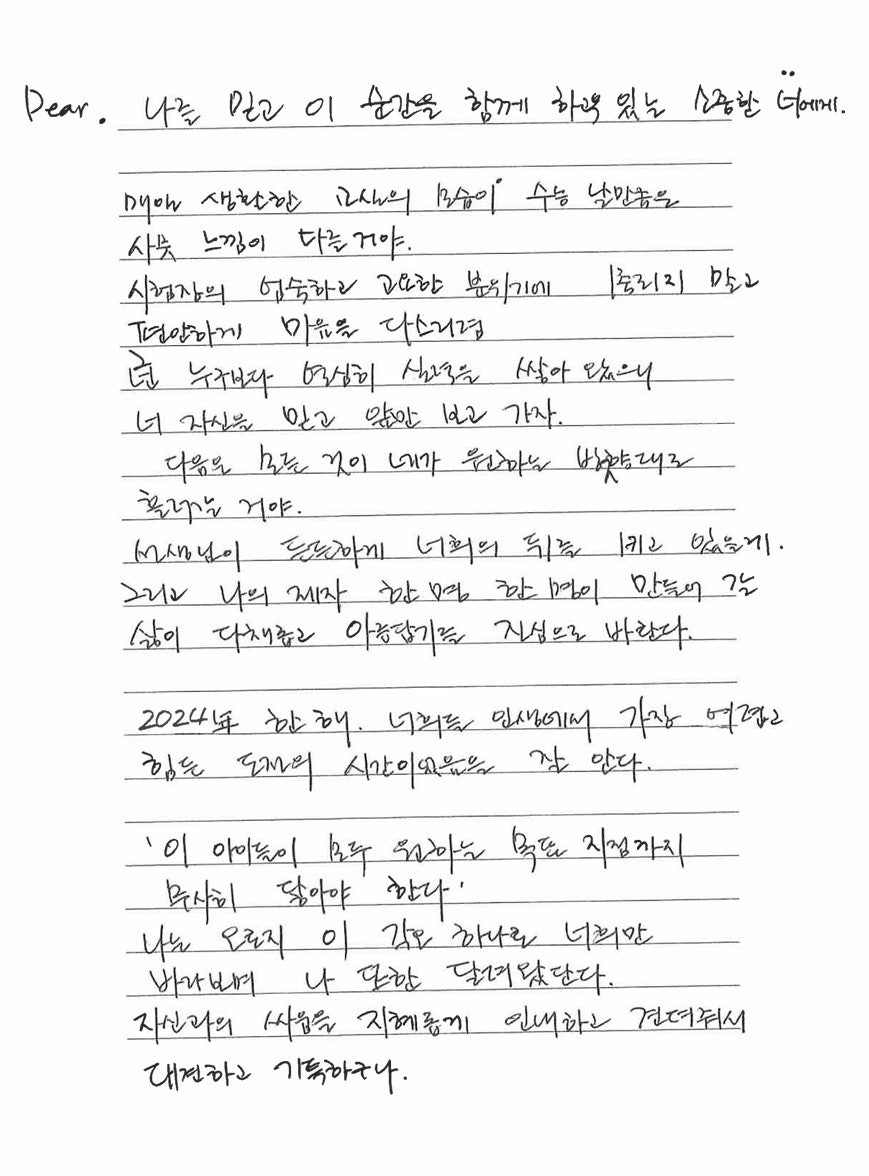 Dear. 나를 믿고 이 순간을 함께 하고 있는 소중한 너에게.
매일 생활한 교실의 모습이 수능 날만큼은
사뭇 느낌이 다를거야.
시험장의 엄숙하고 고요한 분위기에 휩쓸리지 말고
편안하게 마음을 다스리렴
넌 누구보다 열심히 실력을 쌓아 왔으니
너 자신을 믿고 앞만 보고 가자.
다음은 모든 것이 네가 원하는 방향대로
흘러가는 거야.
선생님이 든든하게 너희의 뒤를 지키고 있을게.
그리고 나의 제자 한 명 한 명이 만들어 갈
삶이 다채롭고 아름답기를 진심으로 바란다.
2024年 한 해. 너희들 인생에서 가장 어렵고
힘든 도전의 시간이었음을 잘 안다.
'이 아이들이 모두 원하는 목표 지점까지
무사히 닿아야 한다'
나는 오로지 이 각오 하나로 너희만
바라보며 나 또한 달려왔단다.
자신과의 싸움을 지혜롭게 인내하고 견뎌줘서
대견하고 기특하구나.